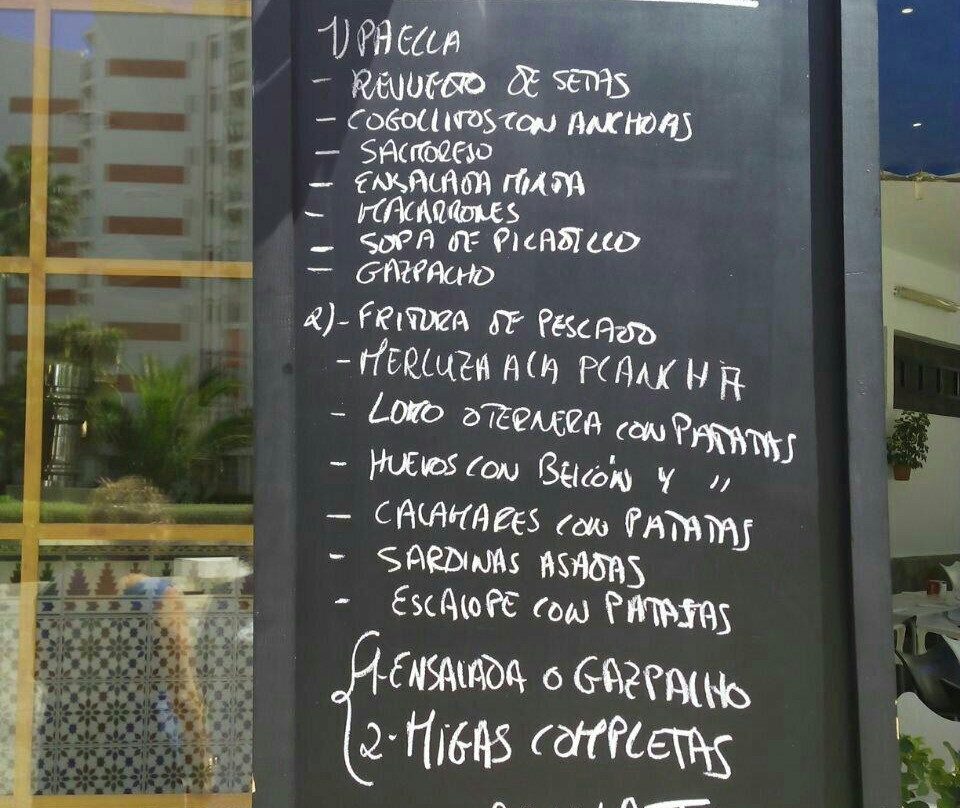 1) PAELLA
- REVUELTO DE SETAS
- COGOLLITOS CON ANCHOAS
- SALMOREJO
- ENSALADA MIXTA
- MACARRONES
- SOPA DE PICADILLO
- GAZPACHO
2)- FRITURA DE PESCADO
- MERLUZA A LA PLANCHA
- LOMO O TERNERA CON PATATAS
- HUEVOS CON BEICON Y "
- CALAMARES CON PATATAS
- SARDINAS ASADAS
- ESCALOPE CON PATATAS
1-ENSALADA O GAZPACHO
2-MIGAS COMPLETAS